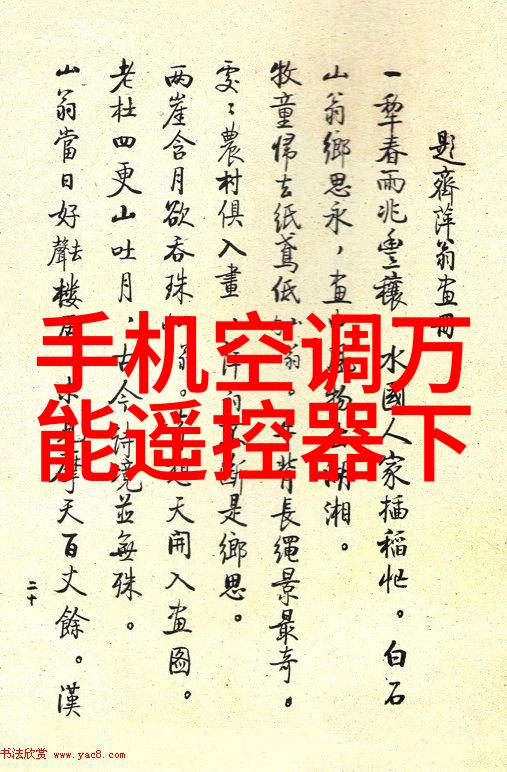 題齊萍翁畫冊
一犂春雨兆豐穰水國人家插稻忙。白石
山翁鄉思永，畫物湖湘。
牧童歸去紙鳶低翁。背長繩景最奇。
處々農村俱入畫、斷是鄉思。
兩崖含月欲吞珠翁。想天開入畫圖。
老杜四更山吐月，古今詩境並無殊。
山翁當日好去聲樓居摩天百丈餘。漢
二十
手机空调万
能遥控器下
书法欣赏 www.yac8.com